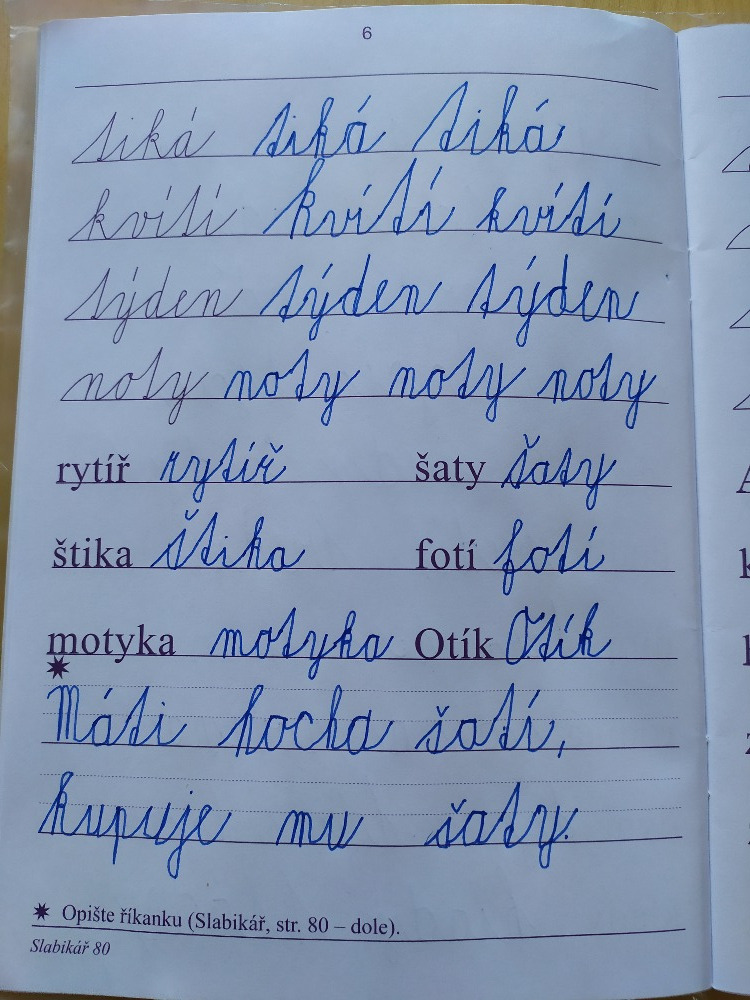 6
tiká tiká tiká
kvítí kvítí kvítí
týden týden týden
noty noty noty noty
rytíř rytíř šaty šaty
štika štika fotí fotí
motyka motyka Otík Otík
Máti hocha šatí,
kupuje mu šaty.
Opište říkanku (Slabikář, str. 80 – dole).
Slabikář 80